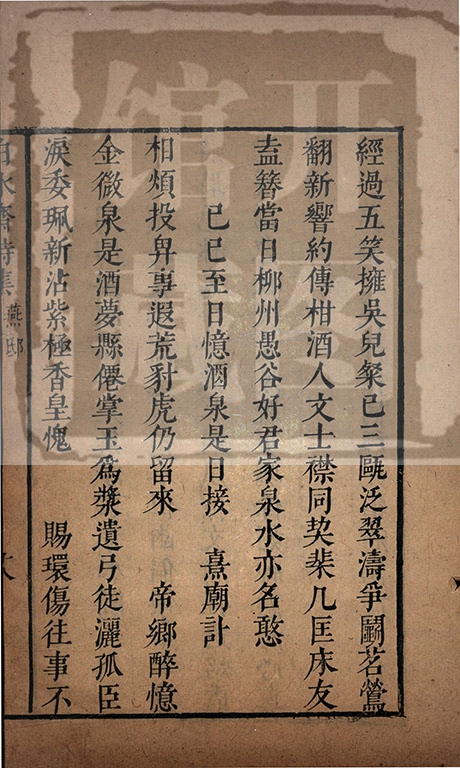 經過五笑擁吳兒粲已三甌泛翠濤爭鬬茗鶯
翻新響約傳柑酒人文士襟同契棐几匡床友
盍簪當日柳州愚谷好君家泉水亦名憨
己巳至日憶酒泉是日接　熹廟計
相煩投畀事遐荒豺虎仍留來　帝鄉醉憶
金微泉是酒夢縣僊掌玉為漿遺弓徒灑孤臣
淚委珮新沾紫極香皇愧　賜環傷往事不
白水齋詩集　燕邸